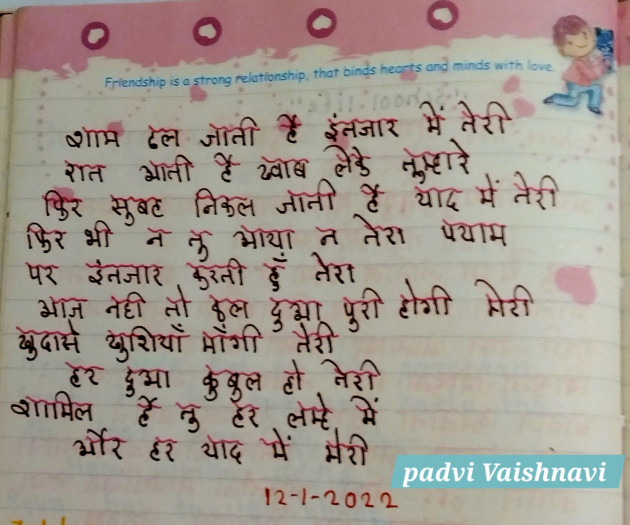 Friendship is a strong relationship, that binds hearts and minds with love.
शाम ढल जाती है इंतजार में तेरी
रात आती है ख्वाब लेके तुम्हारे
फिर सुबह निकल जाती है याद में तेरी
फिर भी न तु आया न तेरा पयाम
पर इंतजार करती हुँ तेरा
आज नही तो कल दुआ पुरी होगी मेरी
खुदासे खुशियाँ माँगी तेरी
हर दुआ कुबुल हो तेरी
शामिल है तु हर लम्हे में
और हर याद में मेरी
padvi Vaishnavi
12-1-2022